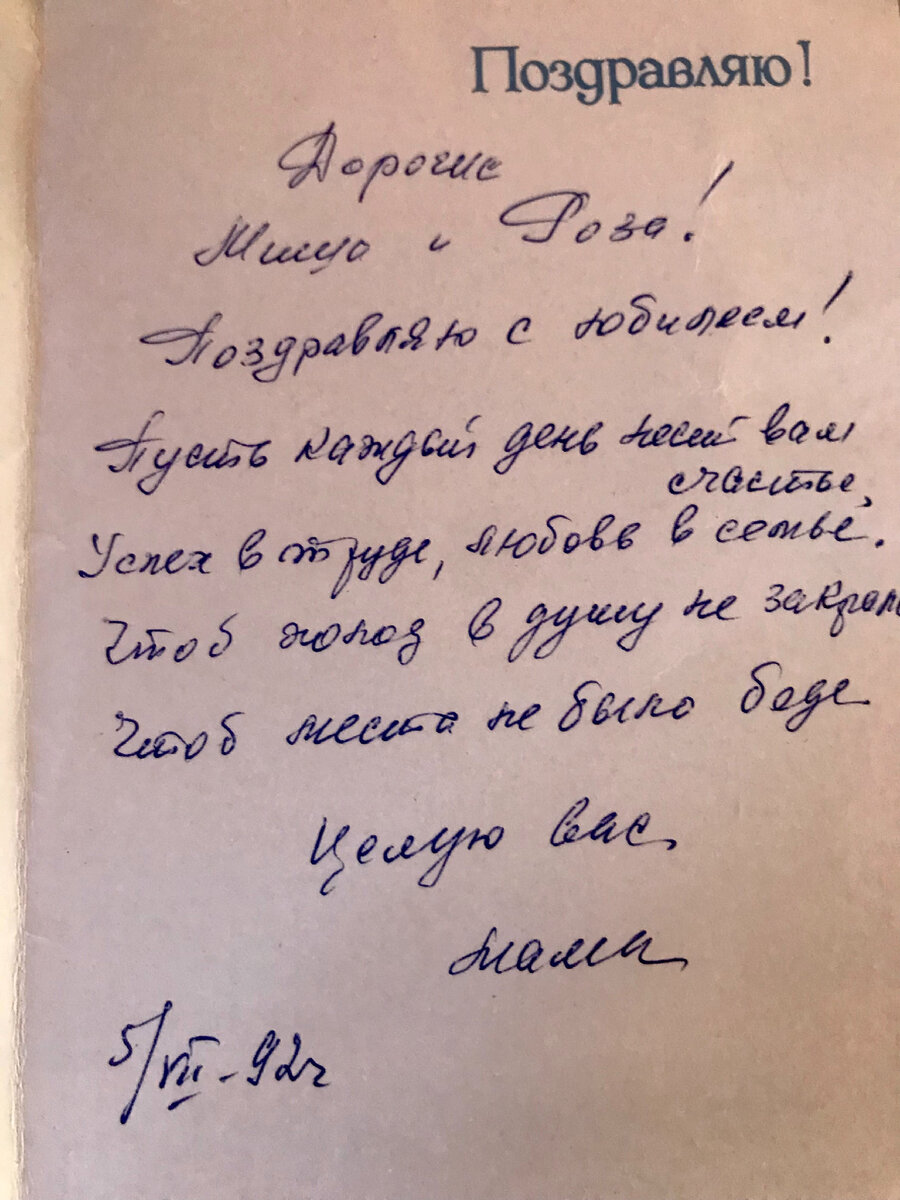 Поздравляю!
Дорогие
Миша и Роза!
Поздравляю с юбилеем!
Пусть каждый день несёт вам
счастье,
Успех в труде, любовь в семье.
Чтоб холод в душу не закрал
Чтоб места не было беде
Целую вас
мама
5/VII-92г